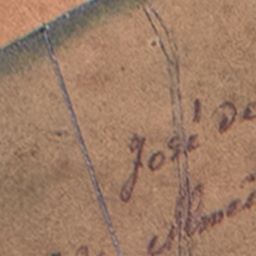 José de
Almei